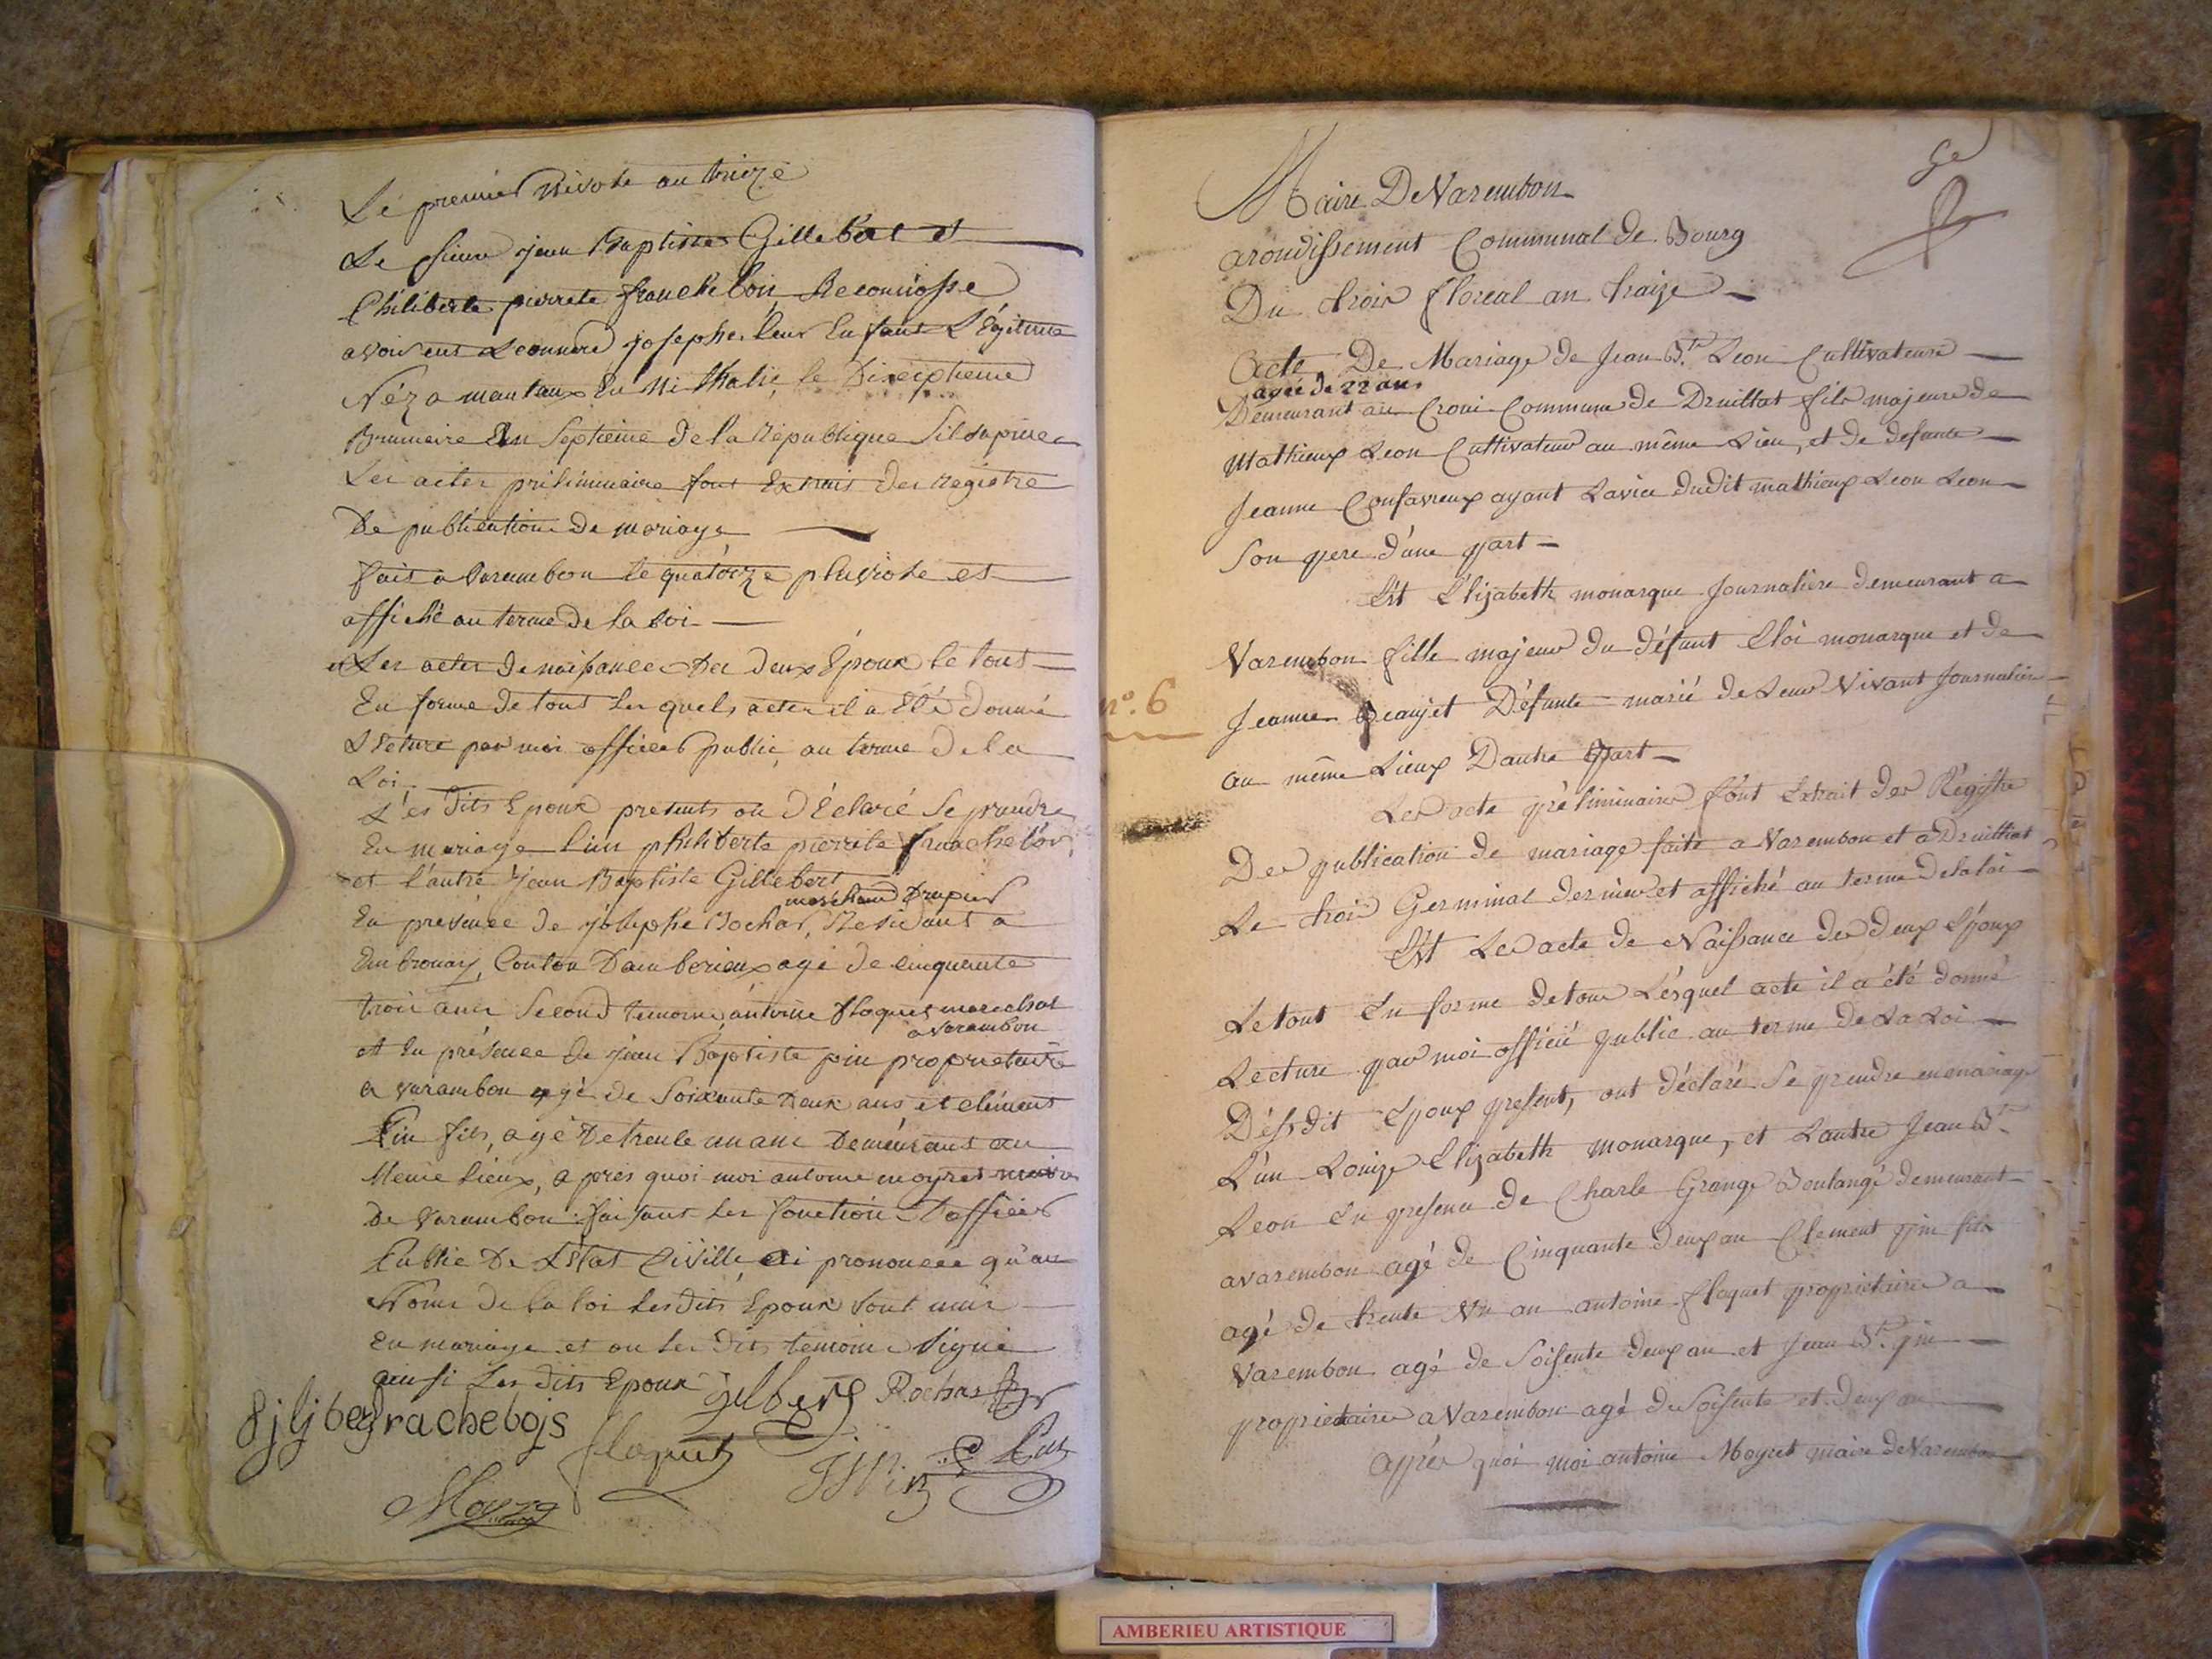 Le premier Nivose an treize
Le sieur jean Baptiste Gillebert et
Philiberte pierrete franchebois Reconnoisse
avoir eus Leonnard josephe leur Enfant Légitime
Néz a mantaux du le Dixseptieme
Brumaire An Septieme de la République
Les actes priliminaire sont Extrais des registre
De publication De mariage
fait a Varambon le quatorze pluviose et
affiché au terme De la loi
et Les actes De naissance Des deux Époux le tout
En forme De tout les quels actes il a Été Donné
Lecture par moi officier public, au terme De la
Loi
Les dits Epoux presents on Déclaré Se prandre
En mariage l'un philiberte pierrete franchebois
et l'autre Jean Baptiste Gillebert
marchand Drapier
En présence de josephe Rochas, Residant a
Embronay, Conton Damberieux agé de cinquante
trois ans Second temoin antoine floquet marechal
a varambon
et En présence de jean Baptiste pin proprietaire
a varambon agé de Soixante Deux ans et clément
Pin fils, agé De trente un ans Demeurant au
Meme lieux, apres quoi moi antoine moyret maire
De Varambon faisant les fonction D'officier
Public De L'état Civille ai prononcée qu'au
Nom De la loi Les dits Epoux Sont unis
En mariage et on Les Dits temoins Signé
ainsi Les Dits Epoux Gilbert Rochas
frachebojs
floquet JB Pin C Pin
Moyret
Maire De Varembon
arondissement Communal de Bourg
Du trois floreal an traize
Acte De Mariage de Jean Bte Leon Cultivateure
agée de 22 ans
Demeurant au Croui Commune de Druillat fils majeure de
Mathieux Leon Cultivateur au même Lieu, et de defunte
Jeanne Confavreux ayant Lavice dudit mathieux Leon Leon
Son pere d'une part
Est Elizabeth monarque Journalière demeurant a
Varembon fille majeur du défunt Eloi monarque et de
n°. 6
Jeanne Beaujet Défunte marié de Leur Vivant Journalier
au même Lieux Dautre Part
Les acte préliminaire sont Extrait des Régistre
De publication de mariage faite a Varembon et a Druillat
Le trois Germinal dernier et affiché au terme Delaloi
Est Les acte de Naissance des deux Époux
Letout En forme detous Lesquel acte il a été donné
Lecture par moi officié public au terme de La Loi
Désdit Epoux present, ont déclaré Se prendre enmariage
L'un Louize Elizabeth monarque, et Lautre Jean Bte
Leon En presence de Charle Grange Boulangé demeurant
avarembon agé de Cinquante deux an Clement pin fils
agé de trente Un an antoine floquet proprietaire a
Varembon agé de Soisente deux an et Jean Bte pin
proprietaire a Varembon agé de Soisente et deux an
Après quoi moi antoine Moyret maire de Varembon
AMBERIEU ARTISTIQUE